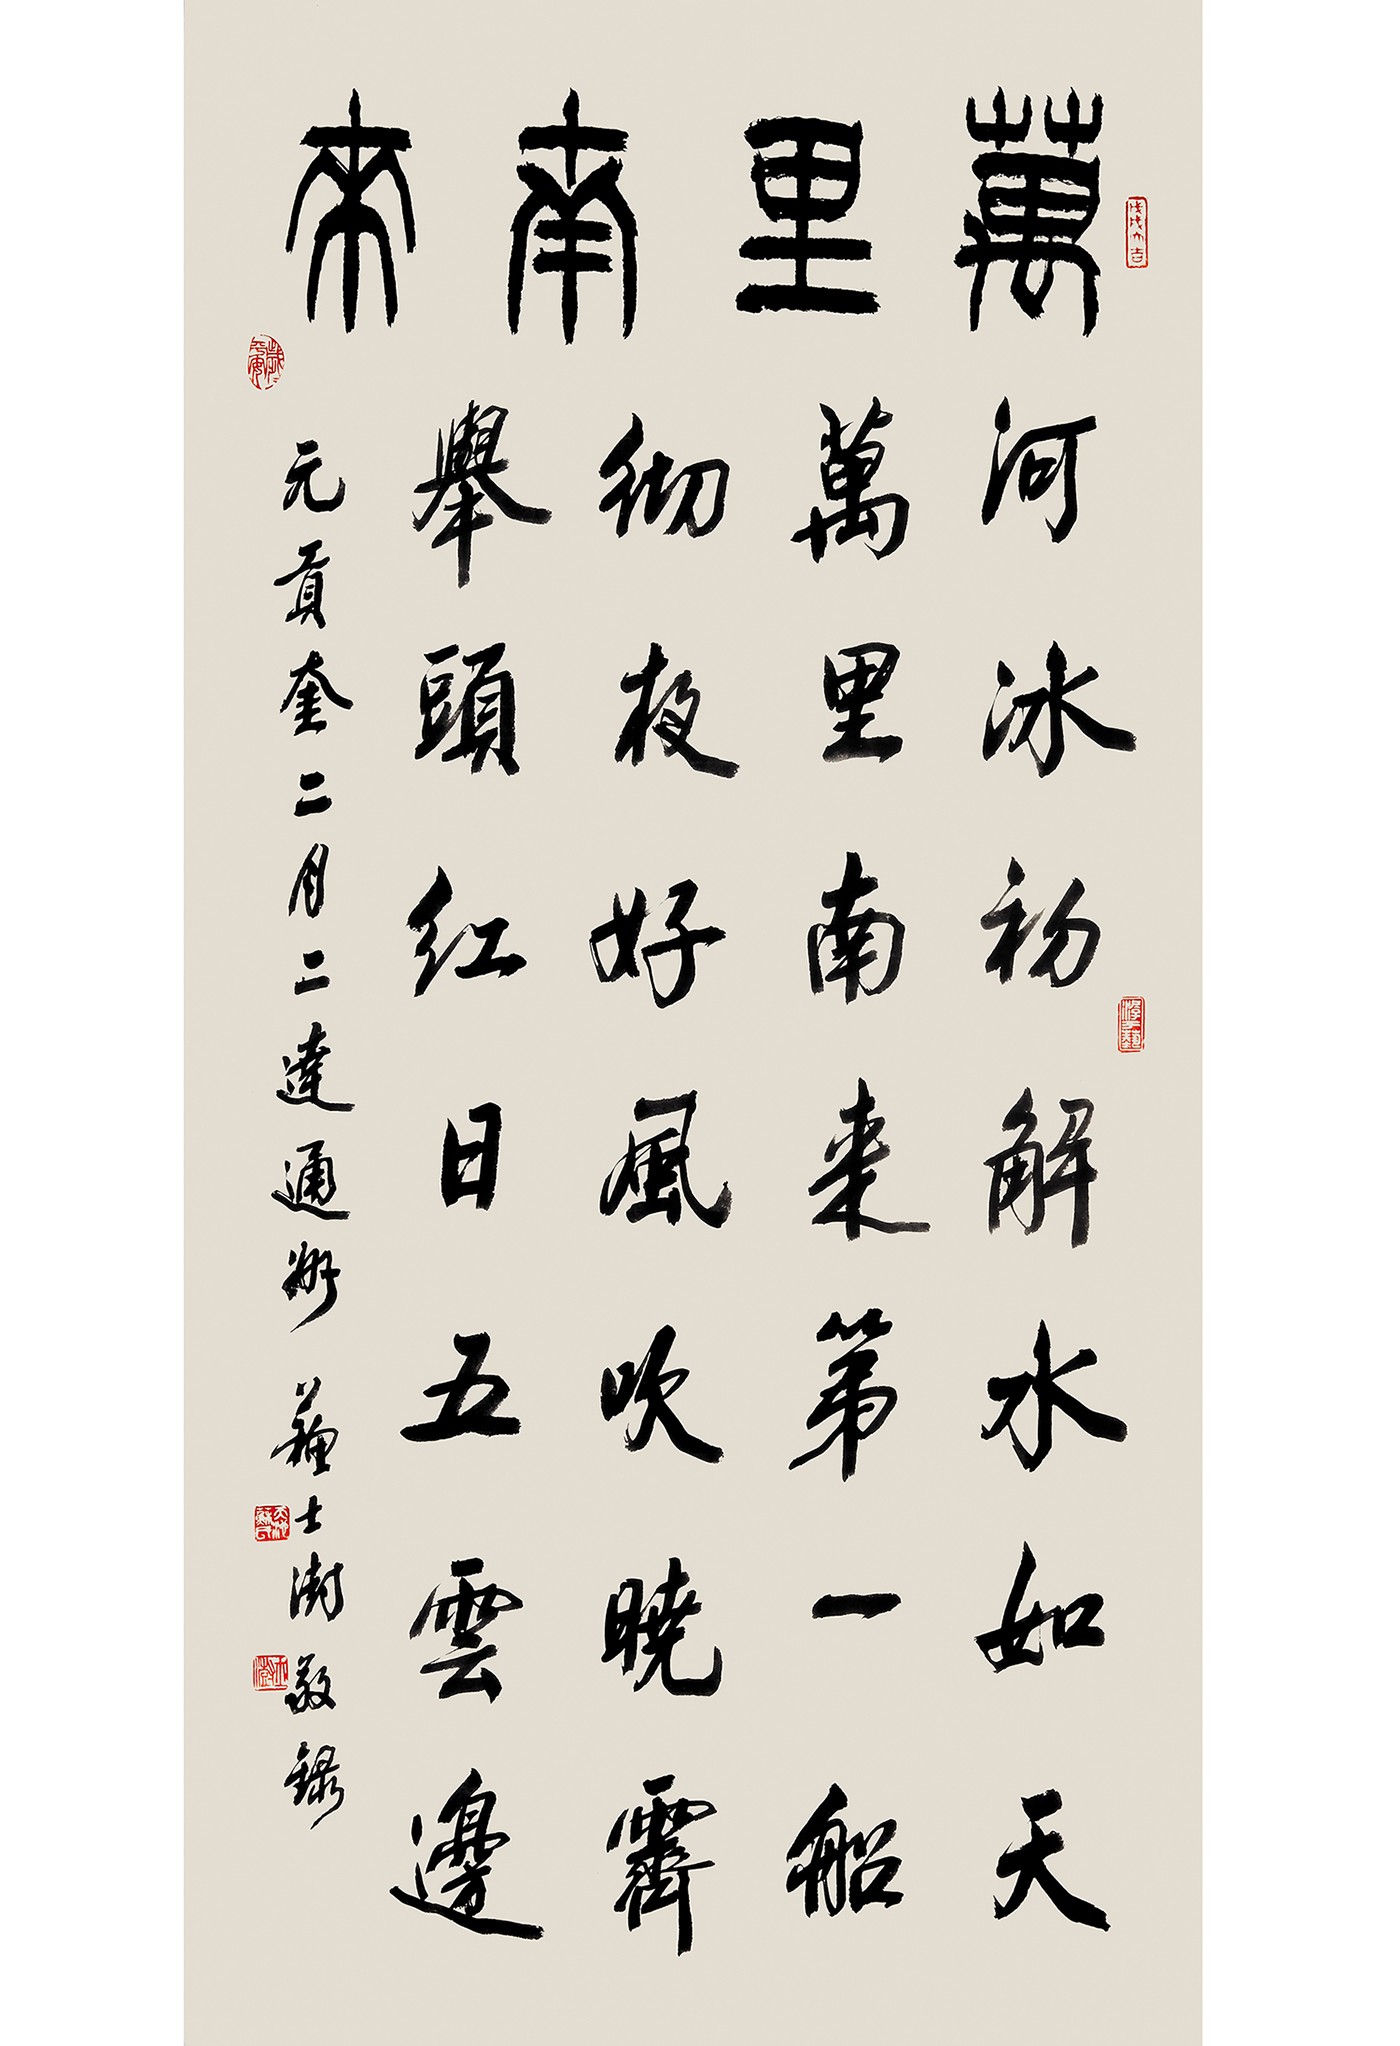 萬里南來
河冰初解水如天
萬里南來第一船
徹夜好風吹曉霽
舉頭紅日五雲邊
元貢奎二月二達通州 蘇士澍敬錄
戊戌大吉